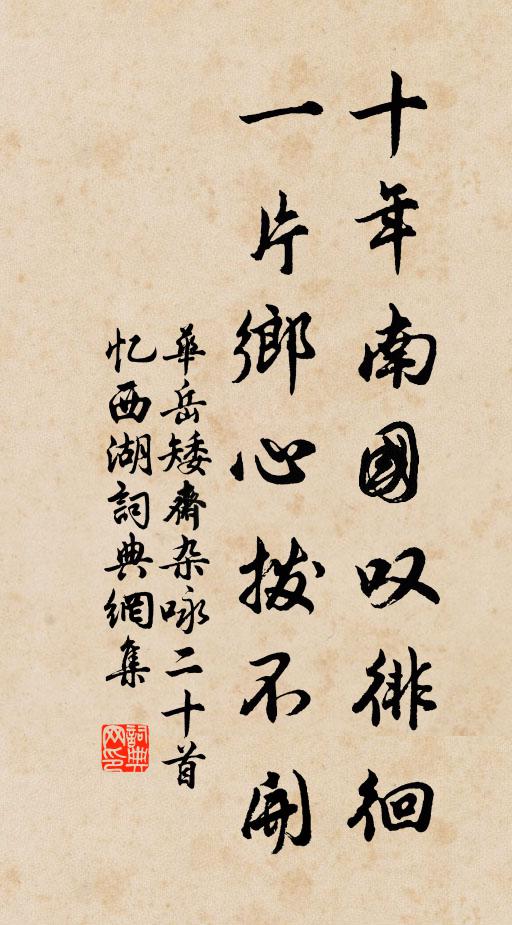 十年南國叹徘徊
一片鄉心拨不開
華岳矮齋杂咏二十首
忆西湖詞典網集
詞典网印